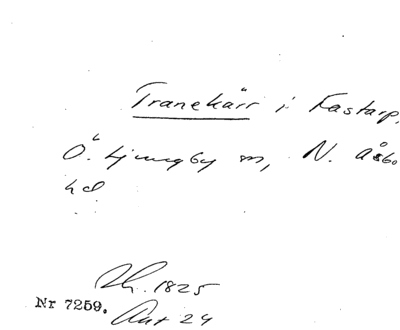 Tranekärr i Fastarp,
Ö. Ljungby sn, N. Åsbo
hd
1825
Nr 7259.
Akt 24